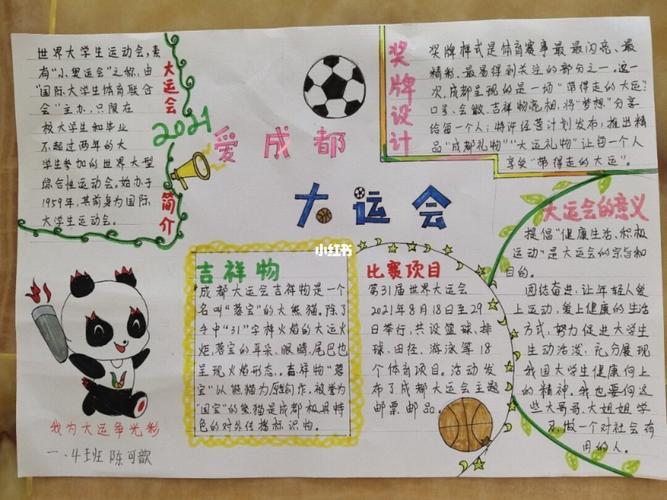 世界大学生运动会,素
有“小奥运会”之称,由
“国际大学生体育联合
会”主办,只限在
校大学生和毕业
不超过两年的大
学生参加的世界大型
综合性运动会。始办于
1959年,其前身为国际
大学生运动会。
大运会
2021
简介
爱成都
大运会
小红书
奖牌设计
奖牌样式是体育赛事最最闪亮、最
精制、最易得到关注的部分之一。这一
次,成都呈现的是一场“带得走的大运”
口号、会徽、吉祥物亮相,将“梦想”分享
给每一个人;特许经营计划发布,推出精
品“成都礼物”“大运礼物”让每一个人
享受“带得走的大运”。
吉祥物
成都大运会吉祥物是一个
名叫“蓉宝”的大熊猫,除了
手中“31”字样火焰的大运火
炬,蓉宝的耳朵、眼睛、尾巴也
呈现火焰形态。吉祥物“蓉
宝”以熊猫为原型创作,被誉为
“国宝”的熊猫是成都极具特
色的对外往指标识物。
比赛项目
第31届世界大运会
2021年8月18日至29
日举行,共设篮球、排
球、田径、游泳等18
个体育项目。活动发
布了成都大运会主题
邮票邮品。
大运会的意义
提倡“健康生活、积极
运动”是大运会的宗旨和
目的。
团结奋进,让年轻人爱
上运动,爱上健康的生活
方式,努力促进大学生
生动活泼,充分展现
我国大学生健康向上
的精神。我也要向这
些大哥哥、大姐姐学
习,做一个对社会有
用的人。
我为大运争光彩
一.4班 陈可歆